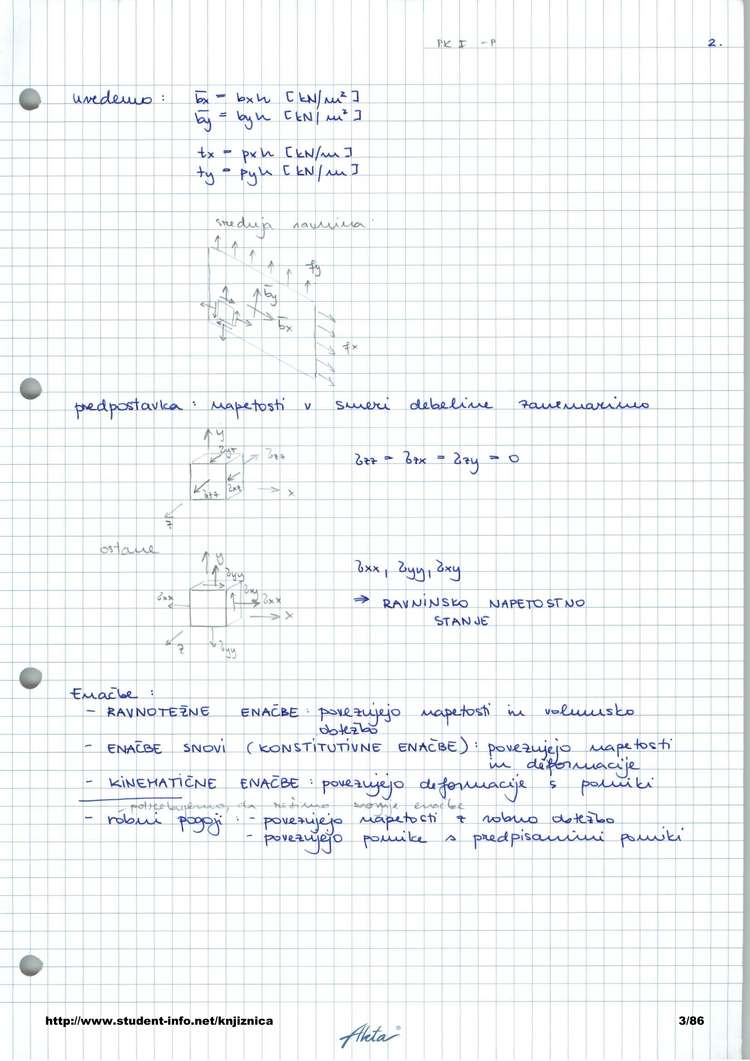 PK I - P 2.
uvedemo : b̄x = bxh [kN/m²]
b̄y = byh [kN/m²]
tx = pxh [kN/m]
ty = pyh [kN/m]
srednja ravnina
ty
b̄y
b̄x
tx
predpostavka : napetosti v smeri debeline zanemarimo
y
σyz σzz
σzz = σzx = σzy = 0
σxz
x
z
ostane
y
σyy
σxx, σyy, σxy
σxx σxy σxx
⇒ RAVNINSKO NAPETOSTNO
x
STANJE
z σyy
Enačbe :
- RAVNOTEŽNE ENAČBE : povezujejo napetosti in volumsko
obtežbo
- ENAČBE SNOVI (KONSTITUTIVNE ENAČBE) : povezujejo napetosti
in deformacije
- KINEMATIČNE ENAČBE : povezujejo deformacije s pomiki
potrebujemo, da rešimo zgornje enačbe
- robni pogoji : - povezujejo napetosti z robno obtežbo
- povezujejo pomike s predpisanimi pomiki
http://www.student-info.net/knjiznica 3/86
Akta